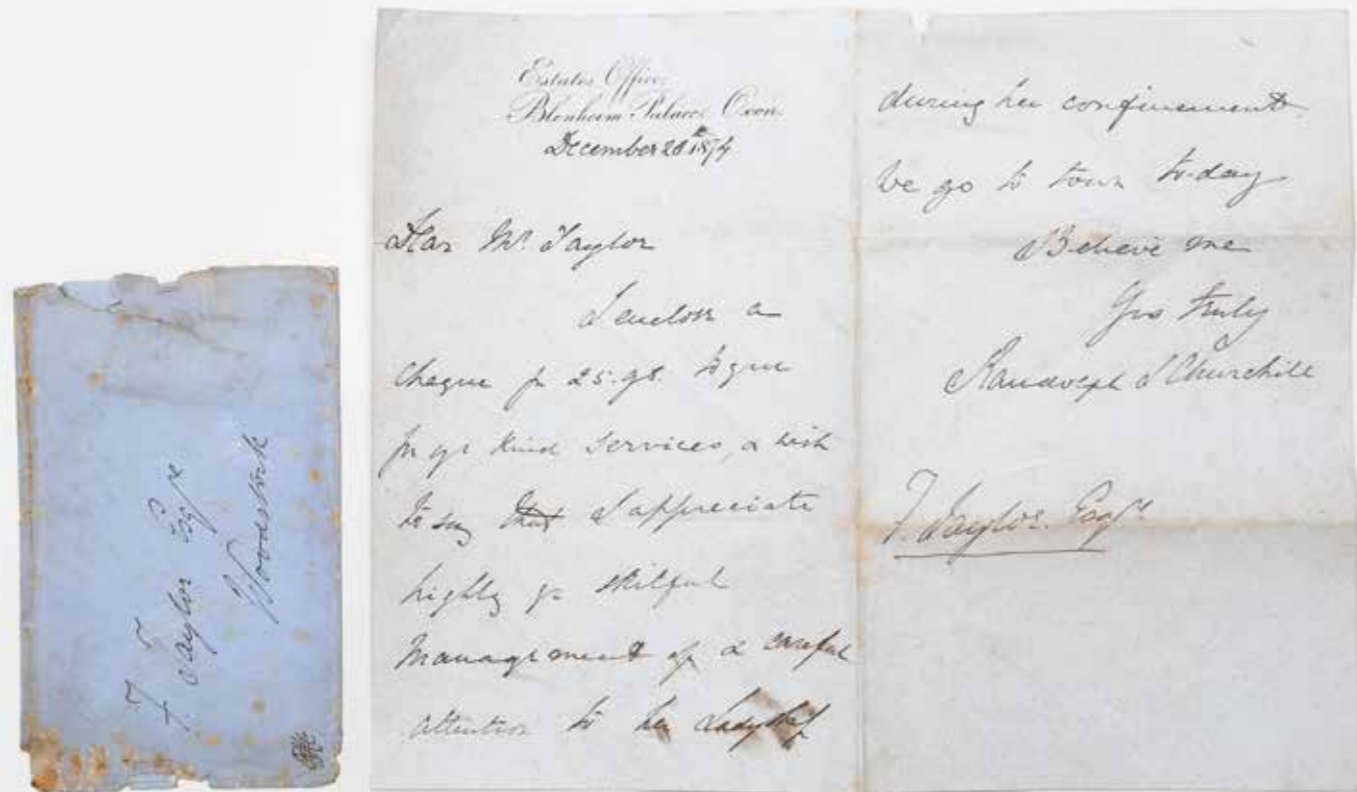 Estates Office,
Blenheim Palace, Oxon.
December 28th 1874
Dear Mr. Taylor
I enclose a
cheque for 25.gs.
for yr kind services, & wish
to say that I appreciate
highly yr skilful
management of & careful
attention to her Ladyship
during her confinement.
We go to town to-day
Believe me
Yrs truly
Randolph S Churchill
F. Taylor. Esqre.
F. Taylor Esqre
Woodstock